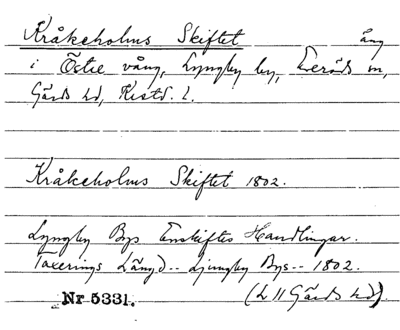 Kråkeholms Skiftet äng
i Östre vång, Lyngby by, Everöds sn,
Gärds hd, Krist. l.
Kråkeholms Skiftet 1802.
Lyngby Bys Enskiftes Handlingar.
Taxerings Längd -- Ljungby Bys -- 1802.
Nr 5331. (L 11 Gärds hd).